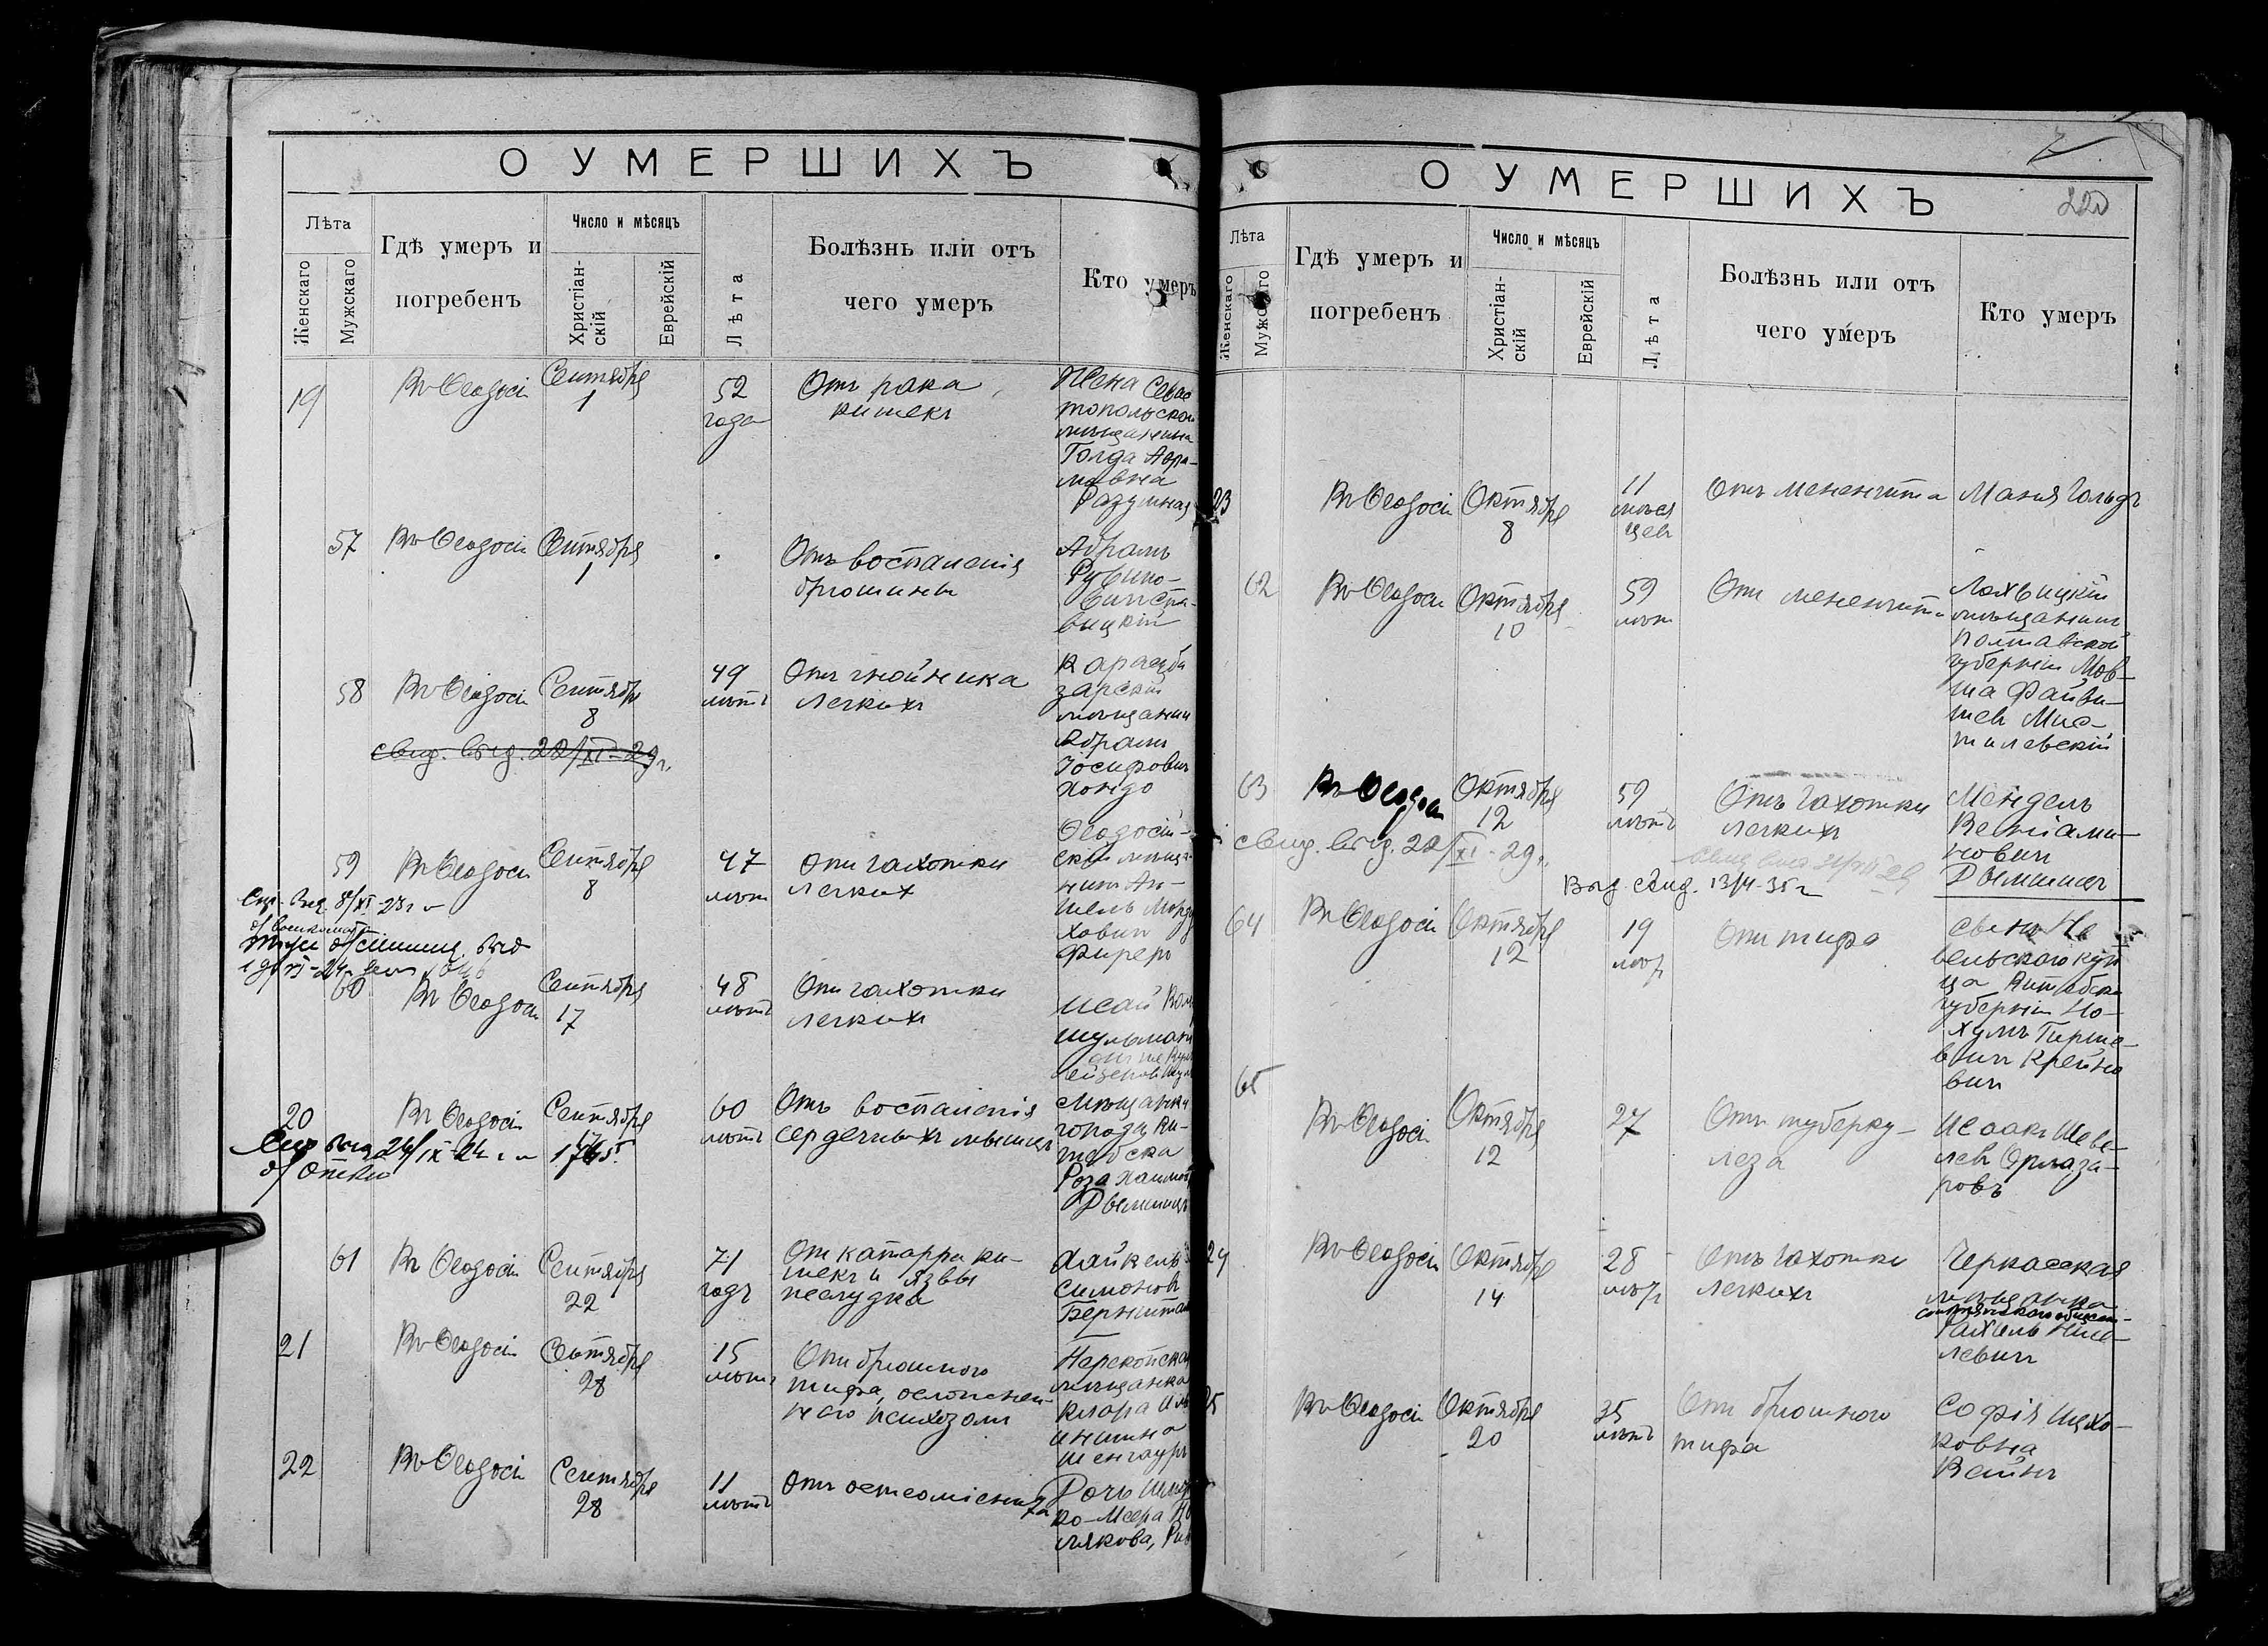 О УМЕРШИХЪ
Лѣта
Женскаго
Мужскаго
Гдѣ умеръ и
погребенъ
Число и мѣсяцъ
Христіан-
скій
Еврейскій
Лѣта
Болѣзнь или отъ
чего умеръ
Кто умеръ
19
Въ Ѳеодосіи
Сентября
1
52
года
Отъ рака
кишекъ
Жена Севас
топольскаго
мѣщанина
Голда Авра-
мовна
Разумная
57
Въ Ѳеодосіи
Сентября
1
Отъ воспаленія
брюшины
Абрамъ
Рувино-
вичъ
вицкій
58
Въ Ѳеодосіи
Сентября
8
49
лѣтъ
Отъ гнойника
легкихъ
Карасуба
зарскій
мѣщанинъ
Абрамъ
Іосифовичъ
Хондо
свид. выд. 22/XI-29г.
59
Въ Ѳеодосіи
Сентября
8
47
лѣтъ
Отъ чахотки
легкихъ
Ѳеодосій-
скій мѣща-
нинъ Ан-
шель Морду
ховичъ
Фиреръ
60
Въ Ѳеодосіи
Сентября
17
48
лѣтъ
Отъ чахотки
легкихъ
Исай
Шульманъ
20
Въ Ѳеодосіи
Сентября
17
60
лѣтъ
Отъ воспаленія
сердечныхъ мышцъ
Мѣщанка
города Ви-
тебска
Роза Хаимов
Дымшицъ
61
Въ Ѳеодосіи
Сентября
22
71
годъ
От катарра ки-
шекъ и язвы
желудка
Хайкель
Симонов
Бернштей
21
Въ Ѳеодосіи
Сентября
28
15
лѣтъ
Отъ брюшного
тифа, осложнен-
наго психозомъ
Перекопская
мѣщанка
Клара
Шенгауръ
22
Въ Ѳеодосіи
Сентября
28
11
лѣтъ
Отъ остеоміелита
Дочь
ко-Меера По
лякова,
О УМЕРШИХЪ
220
Лѣта
Женскаго
Мужскаго
Гдѣ умеръ и
погребенъ
Число и мѣсяцъ
Христіан-
скій
Еврейскій
Лѣта
Болѣзнь или отъ
чего умеръ
Кто умеръ
23
Въ Ѳеодосіи
Октября
8
11
мѣся
цевъ
Отъ менингита
Маня Гольдъ
62
Въ Ѳеодосіи
Октября
10
59
лѣтъ
Отъ менингита
Лохвицкій
мѣщанинъ
Полтавской
губерніи Мов-
ша Файви-
шевъ Мис-
тилевскій
63
Въ Ѳеодосіи
Октября
12
59
лѣтъ
Отъ чахотки
легкихъ
Мендель
Веніами-
новичъ
Дымшицъ
свид. выд. 22/XI-29г.
Выд. свид. 13/4-35г
64
Въ Ѳеодосіи
Октября
12
19
лѣтъ
Отъ тифа
Сынъ Не
вельскаго куп
ца Витебск
губерніи Но-
хумъ Гирше-
вичъ Крейно
вичъ
65
Въ Ѳеодосіи
Октября
12
27
Отъ туберку-
леза
Исаакъ Шеве-
левъ Эрлаза-
ровъ
24
Въ Ѳеодосіи
Октября
14
28
лѣтъ
Отъ чахотки
легкихъ
Черкасская
мѣщанка
Рахиль
левичъ
25
Въ Ѳеодосіи
Октября
20
35
лѣтъ
Отъ брюшного
тифа
Софія Ицхо-
ковна
Вайнъ